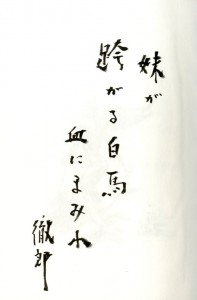 妹が
跨がる白馬
血にまみれ
徹郎